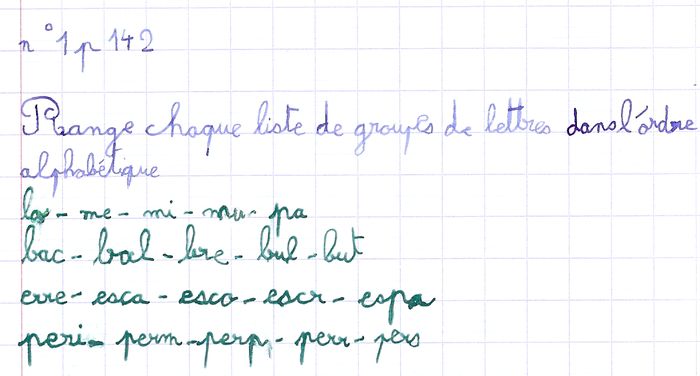 n°1 p 142
Range chaque liste de groupes de lettres dans l'ordre
alphabétique
la - me - mi - mu - pa
bac - bal - bre - bul - but
erre - esca - esco - escr - espa
peri - perm - perp - perr - pers